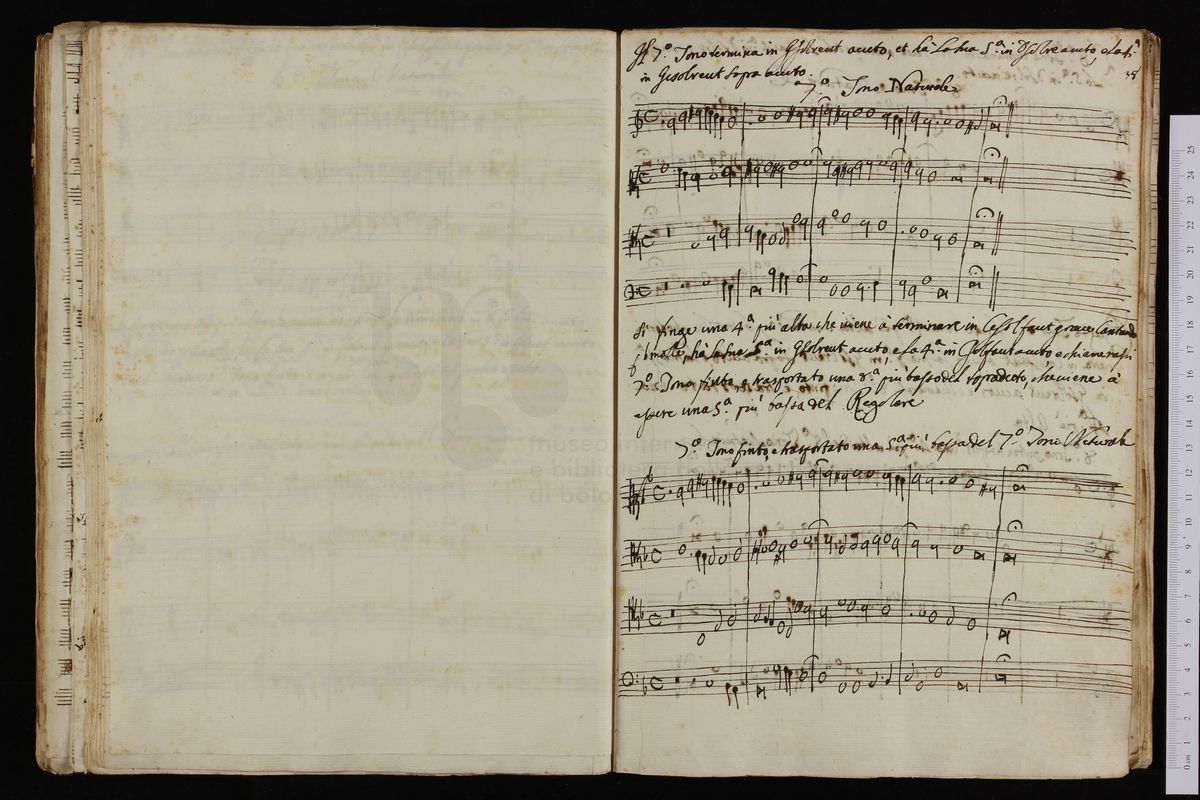 Il 7.º Tono termina in Gsolreut acuto, et hà la sua 5.ª in Dsolre acuto, e la 4.ª
35
in Gesolreut sopra acuto.
7.º Tono Naturale
Si finge una 4.ª più alta che viene à terminare in Cesolfaut grave Cantando
b molle, hà la sua 5.ª in Gsolreut acuto e la 4.ª in Csolfaut acuto e chiamerassi
7.º Tono finto e trasportato una 8.ª più basso del sopradetto, che viene à
essere una 5.ª più bassa del Regolare
7.º Tono finto, e trasportato una 5.ª più bassa del 7.º Tono Naturale
museo inter
e biblioteca
di bolo
0 cm 1 2 3 4 5 6 7 8 9 10 11 12 13 14 15 16 17 18 19 20 21 22 23 24 25